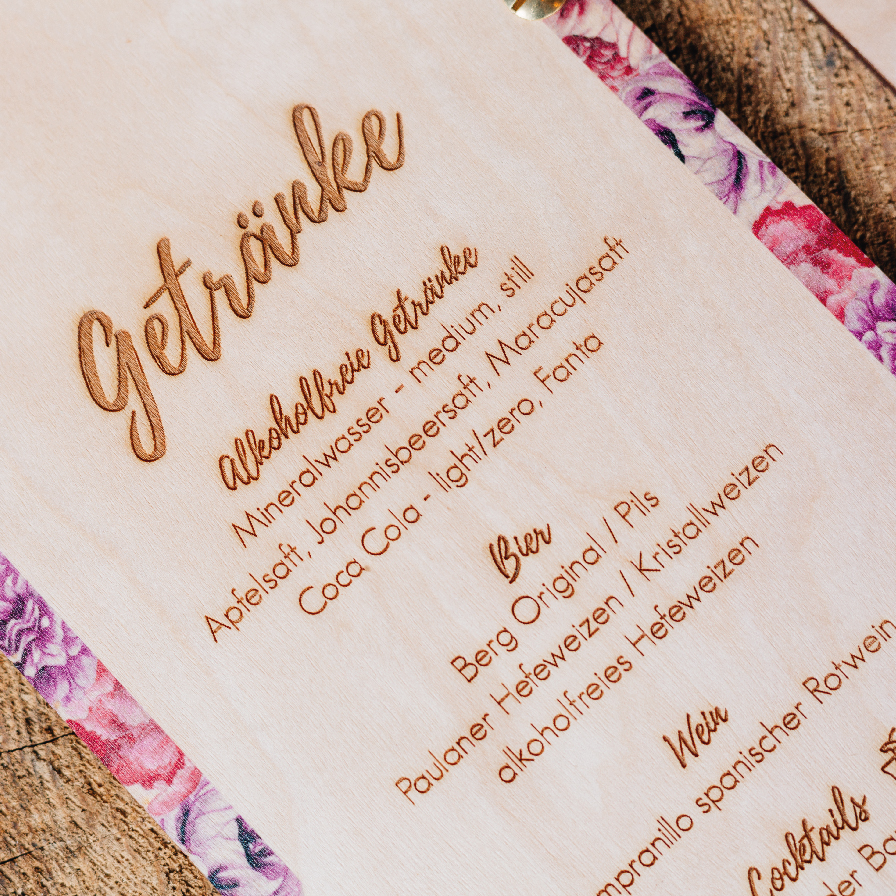 Getränke
Alkoholfreie Getränke
Mineralwasser - medium, still
Apfelsaft, Johannisbeersaft, Maracujasaft
Coca Cola - light/zero, Fanta
Bier
Berg Original / Pils
Paulaner Hefeweizen / Kristallweizen
alkoholfreies Hefeweizen
Wein
mpranillo spanischer Rotwein
Cocktails
der Ba